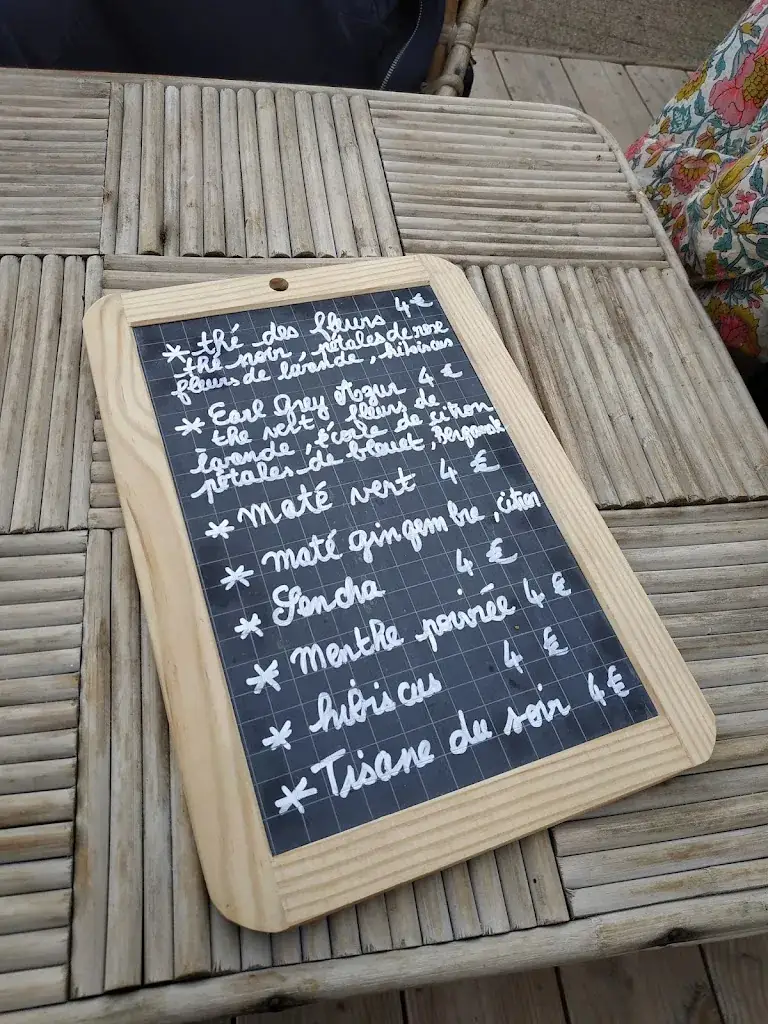 * thé des fleurs 4€
thé noir pétales de rose
fleurs de lavande, hibiscus
* Earl Grey Azur 4€
thé vert, fleurs de
lavande, écorce de citron
pétales de bleuet, Bergamote
* maté vert 4€
* maté gingembre, citron
* Sencha 4€
* menthe poivrée 4€
* hibiscus 4€
* Tisane du soir 4€